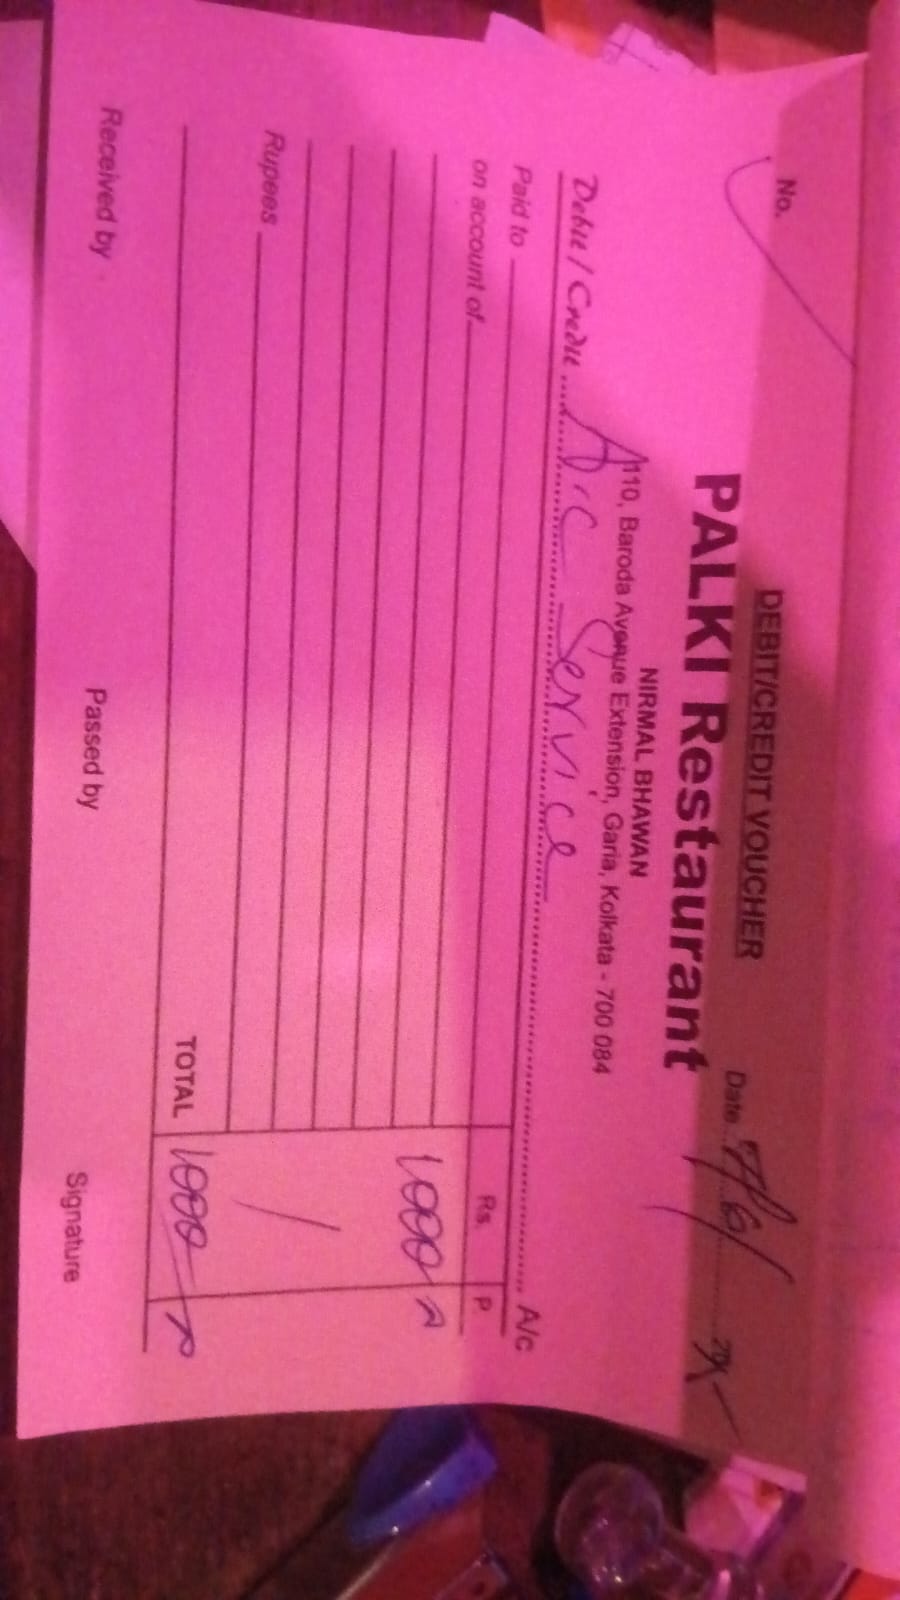 DEBIT/CREDIT VOUCHER
No.
Date 7/6/
PALKI Restaurant
NIRMAL BHAWAN
110, Baroda Avenue Extension, Garia, Kolkata - 700 084
Debit / Credit A.C Service A/c
Paid to
on account of
Rs. P
1000
Rupees
TOTAL 1000
Received by Passed by Signature